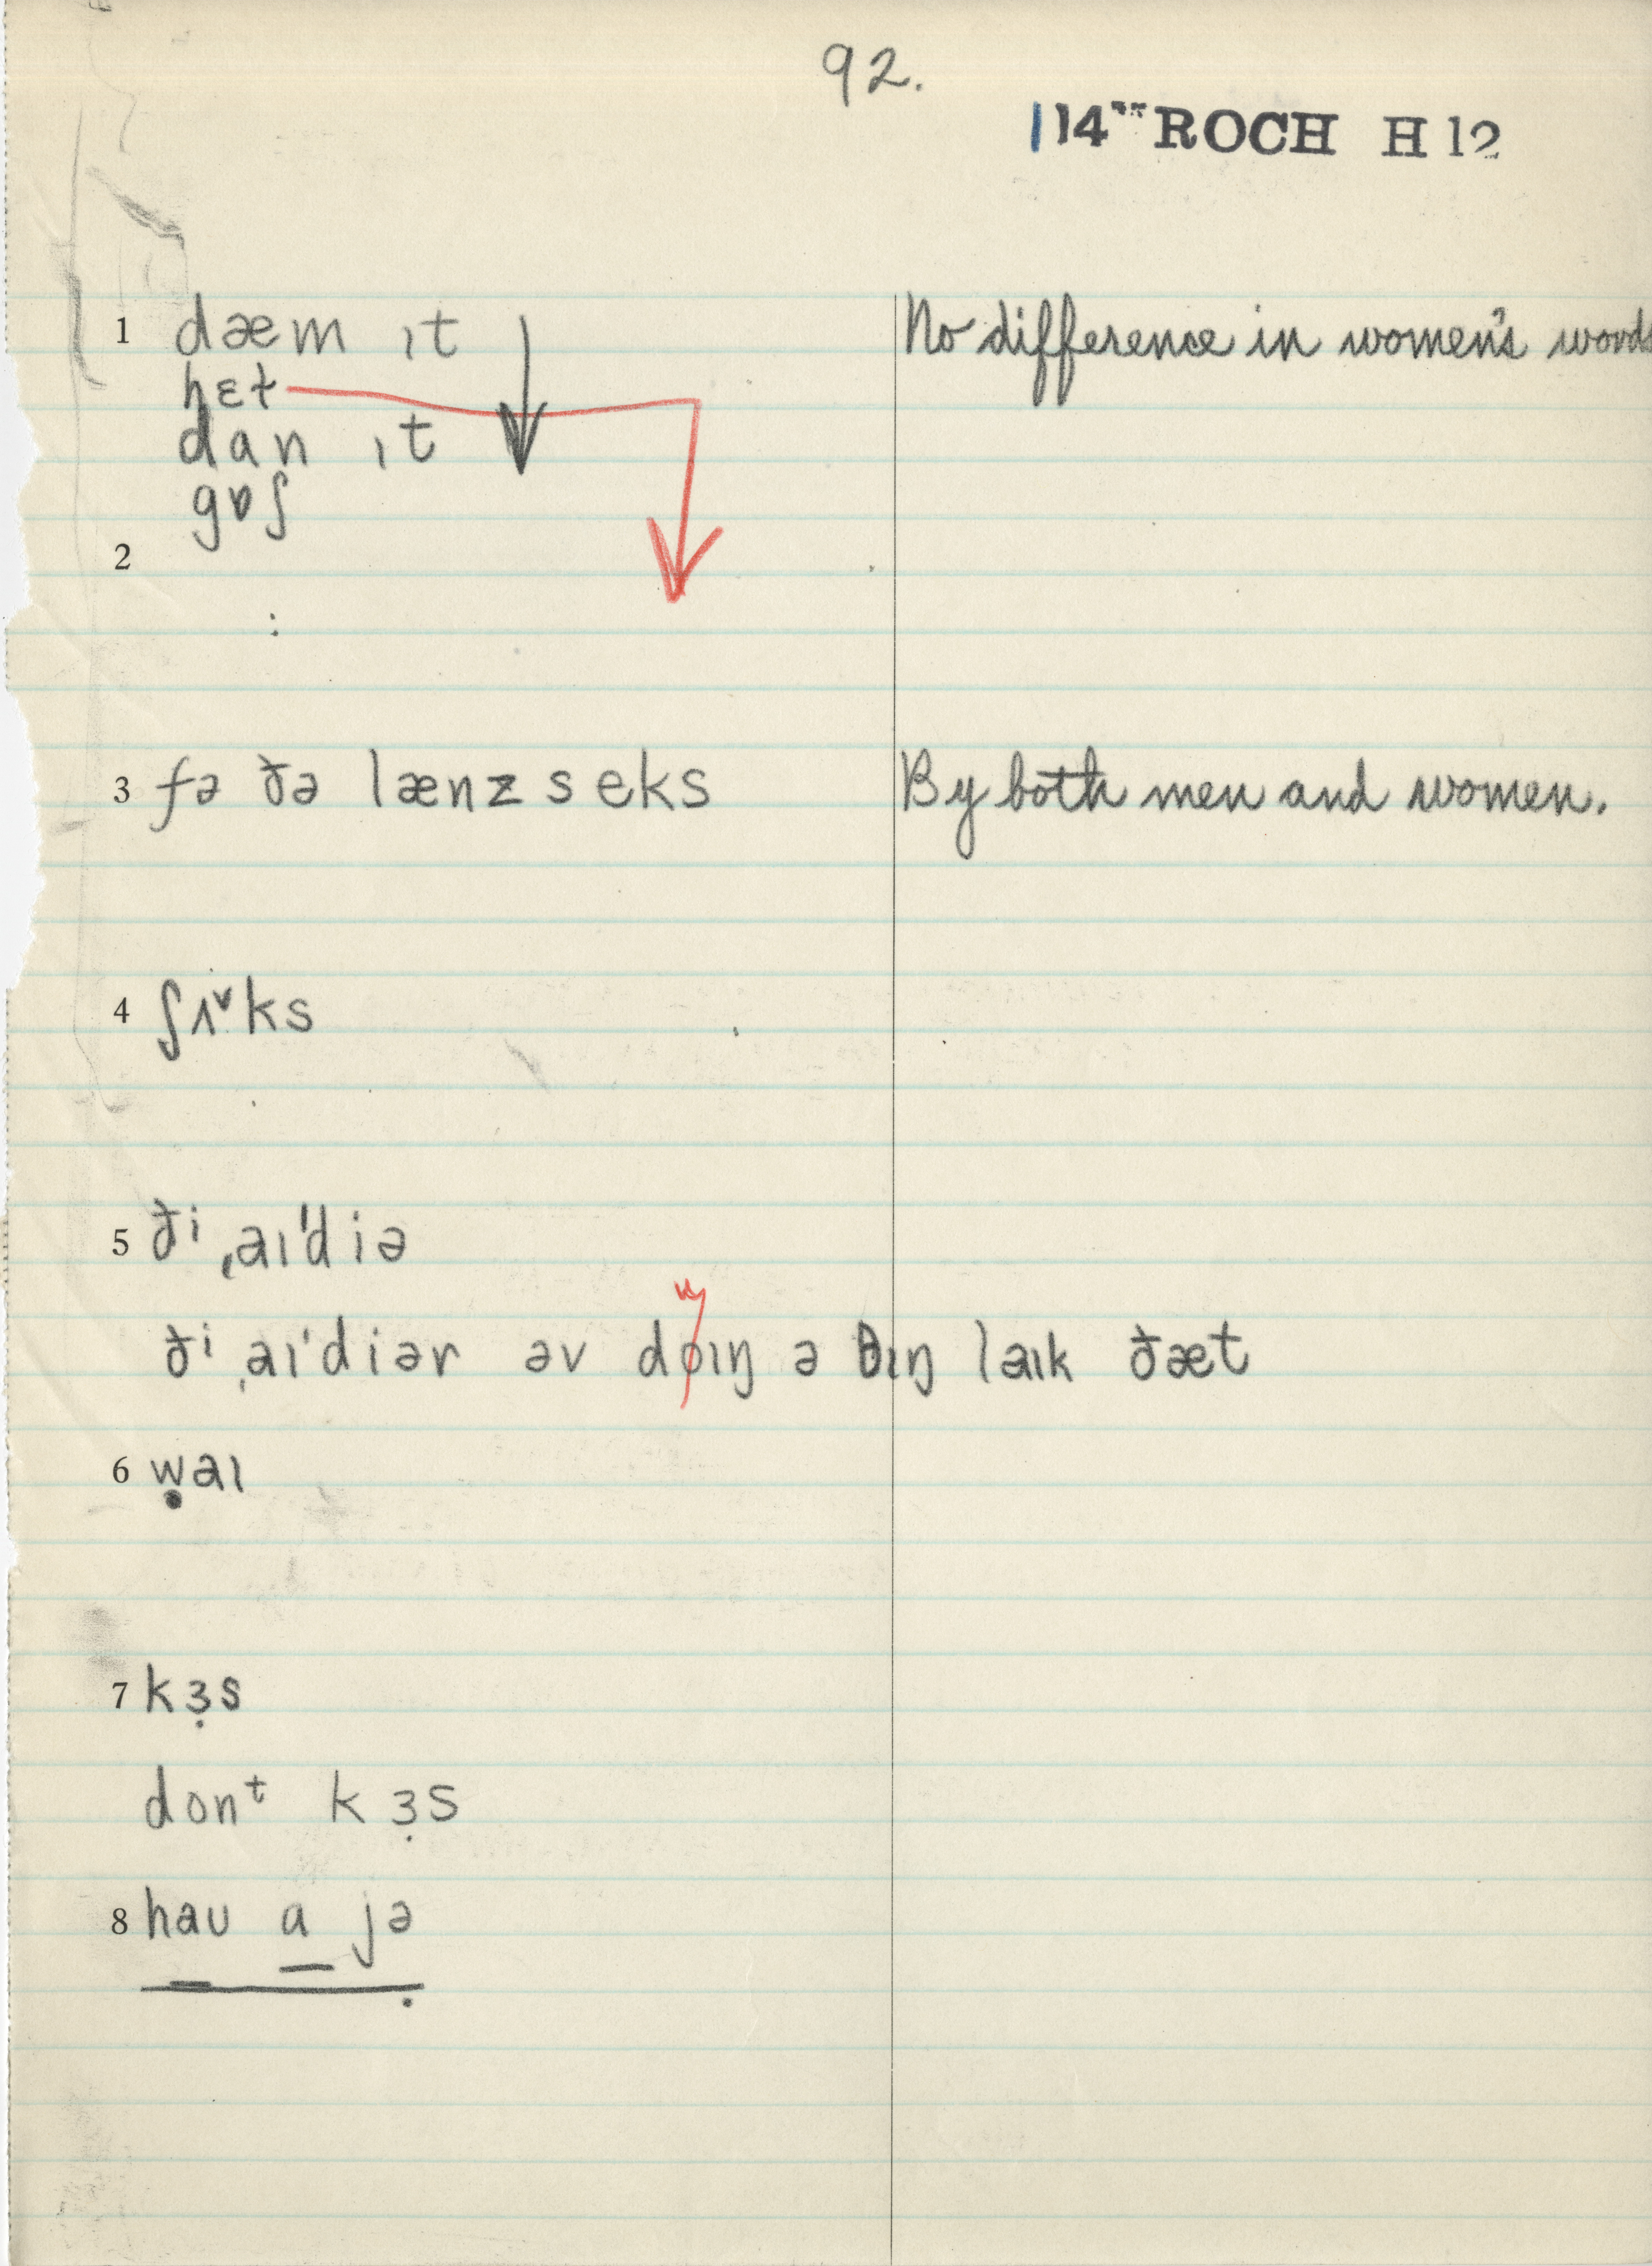 92.
114"" ROCH H 12
1 dæm ɪt No difference in women's words
hɛt
dan ɪt
gɒʃ
2
:
3 fə ðə lænz seks By both men and women.
4 ʃʌᵛks
5 ðⁱ ˌaɪˈdiə
ðⁱ ˌaɪˈdiər əv doɪŋ ə θɪŋ laɪk ðæt
6 ẉaɪ
7 kɜ̣s
donᵗ kɜ̣s
8 haʊ a jə